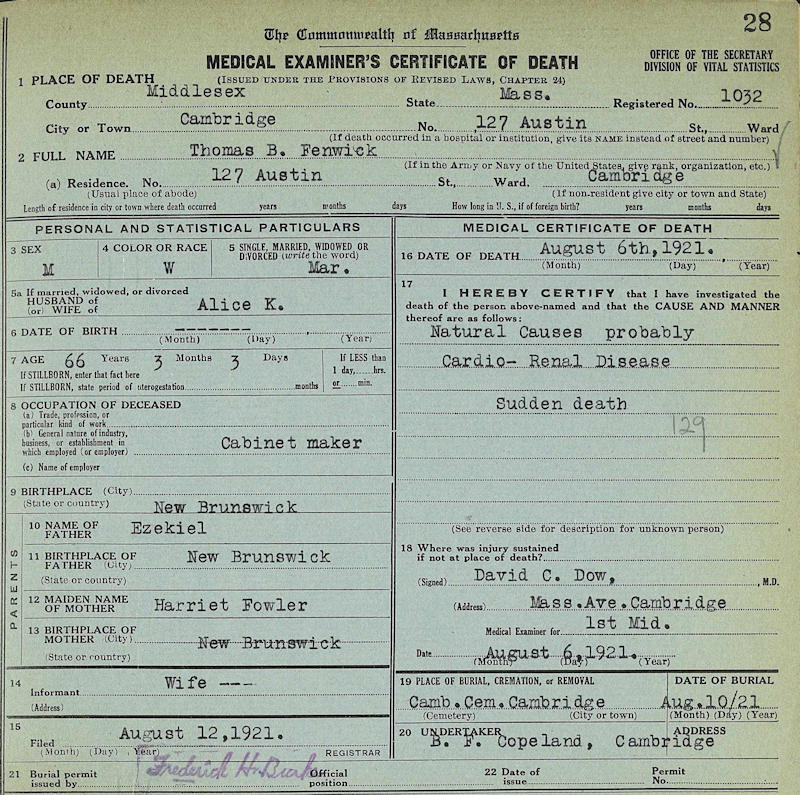 28
The Commonwealth of Massachusetts
MEDICAL EXAMINER'S CERTIFICATE OF DEATH
OFFICE OF THE SECRETARY
DIVISION OF VITAL STATISTICS
(ISSUED UNDER THE PROVISIONS OF REVISED LAWS, CHAPTER 24)
1 PLACE OF DEATH
County Middlesex State Mass. Registered No. 1032
City or Town Cambridge No. 127 Austin St., Ward
(If death occurred in a hospital or institution, give its NAME instead of street and number)
2 FULL NAME Thomas B. Fenwick
(If in the Army or Navy of the United States, give rank, organization, etc.)
(a) Residence. No. 127 Austin St., Ward. Cambridge
(Usual place of abode) (If non-resident give city or town and State)
Length of residence in city or town where death occurred years months days How long in U. S., if of foreign birth? years months days
PERSONAL AND STATISTICAL PARTICULARS
3 SEX
M
4 COLOR OR RACE
W
5 SINGLE, MARRIED, WIDOWED OR
DIVORCED (write the word)
Mar.
5a If married, widowed, or divorced
HUSBAND of
(or) WIFE of Alice K.
6 DATE OF BIRTH -------
(Month) (Day) (Year)
7 AGE 66 Years 3 Months 3 Days
If LESS than
1 day, hrs.
or min.
If STILLBORN, enter that fact here
If STILLBORN, state period of uterogestation months
8 OCCUPATION OF DECEASED
(a) Trade, profession, or
particular kind of work
(b) General nature of industry,
business, or establishment in
which employed (or employer) Cabinet maker
(c) Name of employer
9 BIRTHPLACE (City)
(State or country) New Brunswick
PARENTS
10 NAME OF
FATHER Ezekiel
11 BIRTHPLACE OF
FATHER (City) New Brunswick
(State or country)
12 MAIDEN NAME
OF MOTHER Harriet Fowler
13 BIRTHPLACE OF
MOTHER (City) New Brunswick
(State or country)
14
Informant Wife ---
(Address)
15
Filed August 12,1921.
(Month) (Day) (Year) REGISTRAR
MEDICAL CERTIFICATE OF DEATH
16 DATE OF DEATH August 6th,1921.
(Month) (Day) (Year)
17
I HEREBY CERTIFY that I have investigated the
death of the person above-named and that the CAUSE AND MANNER
thereof are as follows:
Natural Causes probably
Cardio- Renal Disease
Sudden death
129
(See reverse side for description for unknown person)
18 Where was injury sustained
if not at place of death?
(Signed) David C. Dow, , M.D.
(Address) Mass.Ave.Cambridge
Medical Examiner for 1st Mid.
Date August 6,1921.
(Month) (Day) (Year)
19 PLACE OF BURIAL, CREMATION, or REMOVAL
Camb.Cem.Cambridge
(Cemetery) (City or town)
DATE OF BURIAL
Aug.10/21
(Month) (Day) (Year)
20 UNDERTAKER ADDRESS
B. F. Copeland, Cambridge
21 Burial permit
issued by Frederick H. Burke
Official
position
22 Date of
issue
Permit
No.